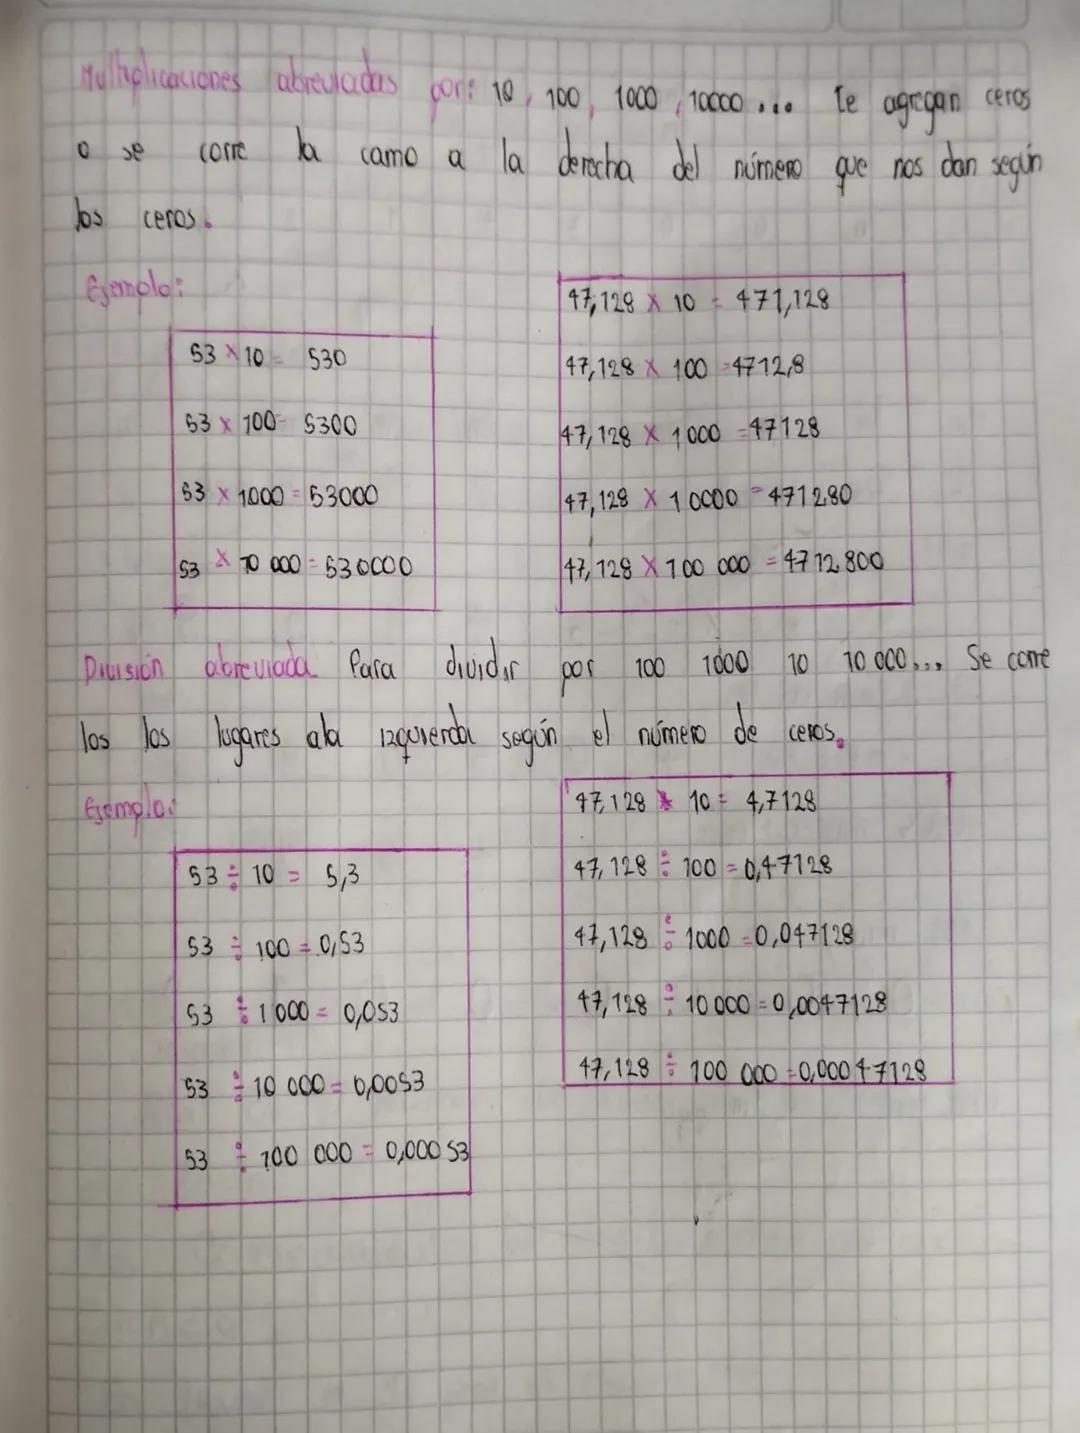 Multiplicaciones abreviadas por: 10, 100, 1000, 10000... Te agregan ceros
o se corre la camo a la derecha del número que nos dan según
los ceros.
Ejemplo:
53 × 10 = 530
53 × 100 = 5300
53 × 1000 = 53000
53 × 10 000 = 530000
47,128 × 10 = 471,128
47,128 × 100 = 4712,8
47,128 × 1000 = 47128
47,128 × 10000 = 471280
47,128 × 100 000 = 4712800
División abreviada Para dividir por 100 1000 10 10 000... Se corre
los los lugares ala izquierda según el número de ceros.
Ejemplo:
53 ÷ 10 = 5,3
53 ÷ 100 = 0,53
53 ÷ 1000 = 0,053
53 ÷ 10 000 = 0,0053
53 ÷ 100 000 = 0,00053
47,128 × 10 = 4,7128
47,128 ÷ 100 = 0,47128
47,128 ÷ 1000 = 0,047128
47,128 ÷ 10 000 = 0,0047128
47,128 ÷ 100 000 = 0,00047128